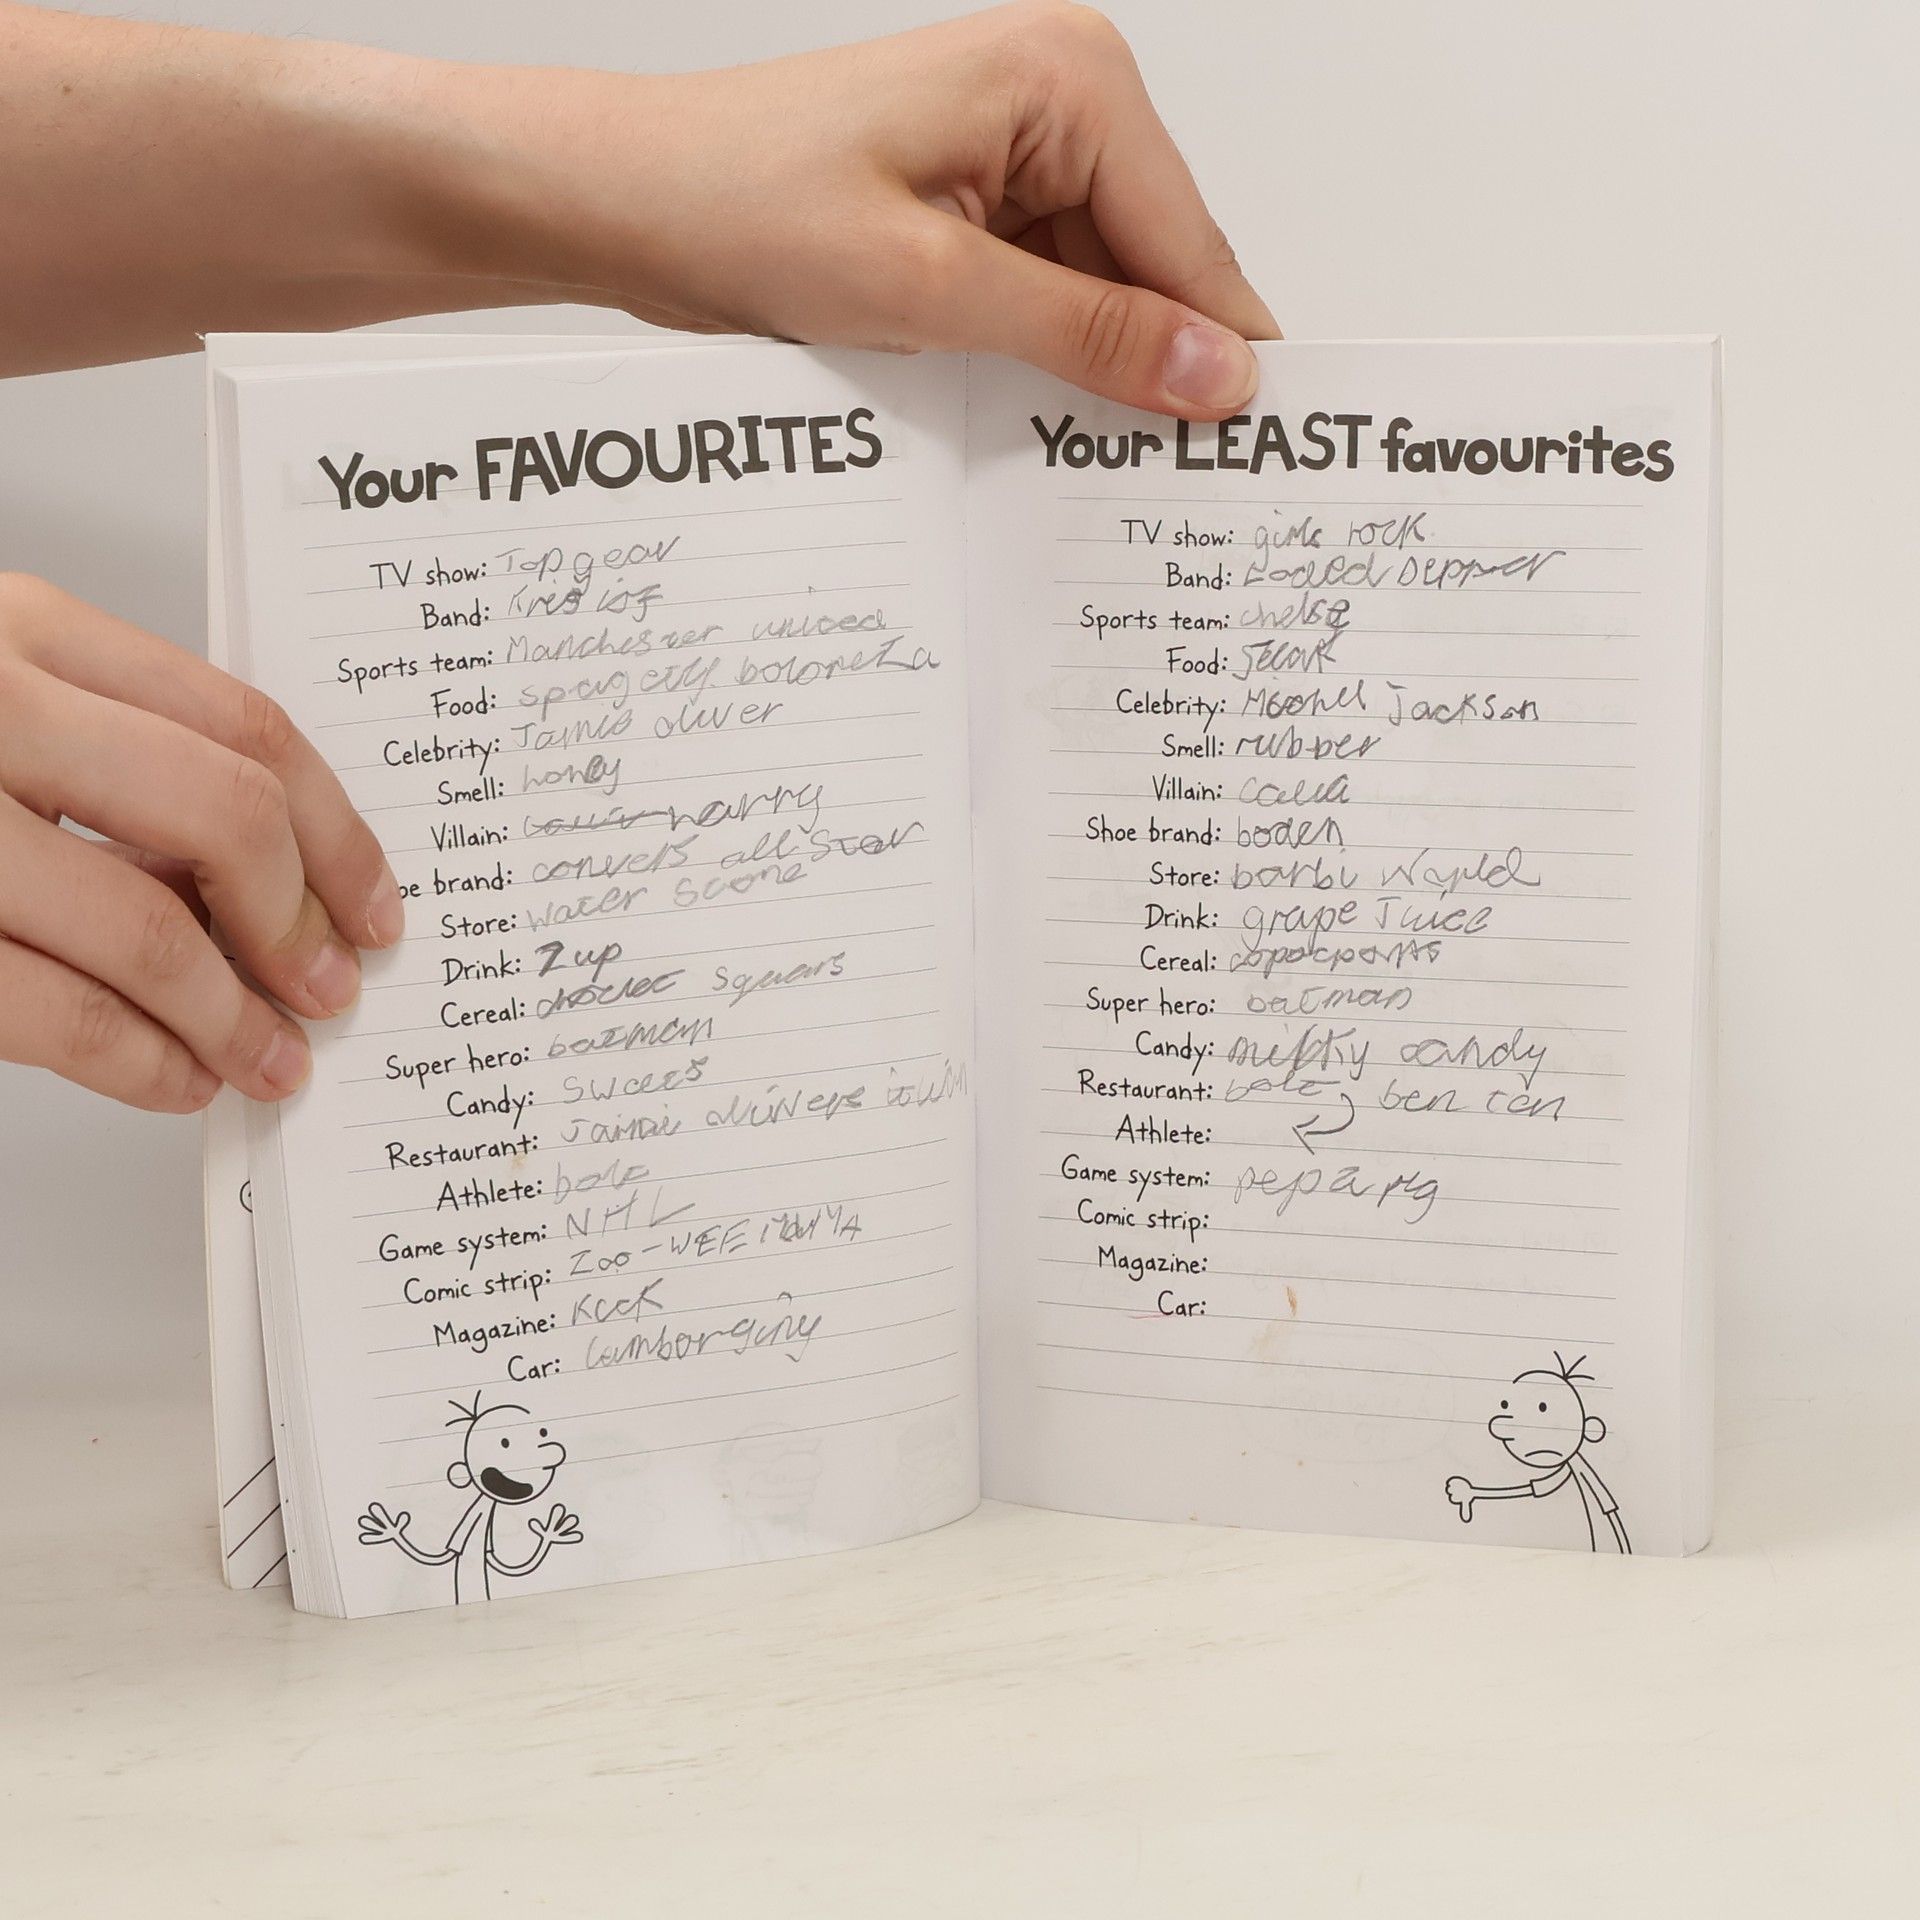 Your FAVOURITES
TV show: Top gear
Band:
Sports team: Manchester uniced
Food: spagetty boloneza
Celebrity: Jamie oliver
Smell: honey
Villain: harry
oe brand: convers all Star
Store: Water Stone
Drink: 7 up
Cereal: squars
Super hero: batman
Candy: Sweets
Restaurant: Jamie olivers
Athlete: bolt
Game system: NHL
Comic strip: Zoo-WEE MAMA
Magazine: Kick
Car: lamborginy
Your LEAST favourites
TV show: girls rock
Band: Depper
Sports team: chelse
Food: Steak
Celebrity: Jackson
Smell: rubber
Villain:
Shoe brand: boden
Store: barbi World
Drink: grape Juice
Cereal:
Super hero: batman
Candy: milky candy
Restaurant: ben ten
Athlete:
Game system: pepa pig
Comic strip:
Magazine:
Car: